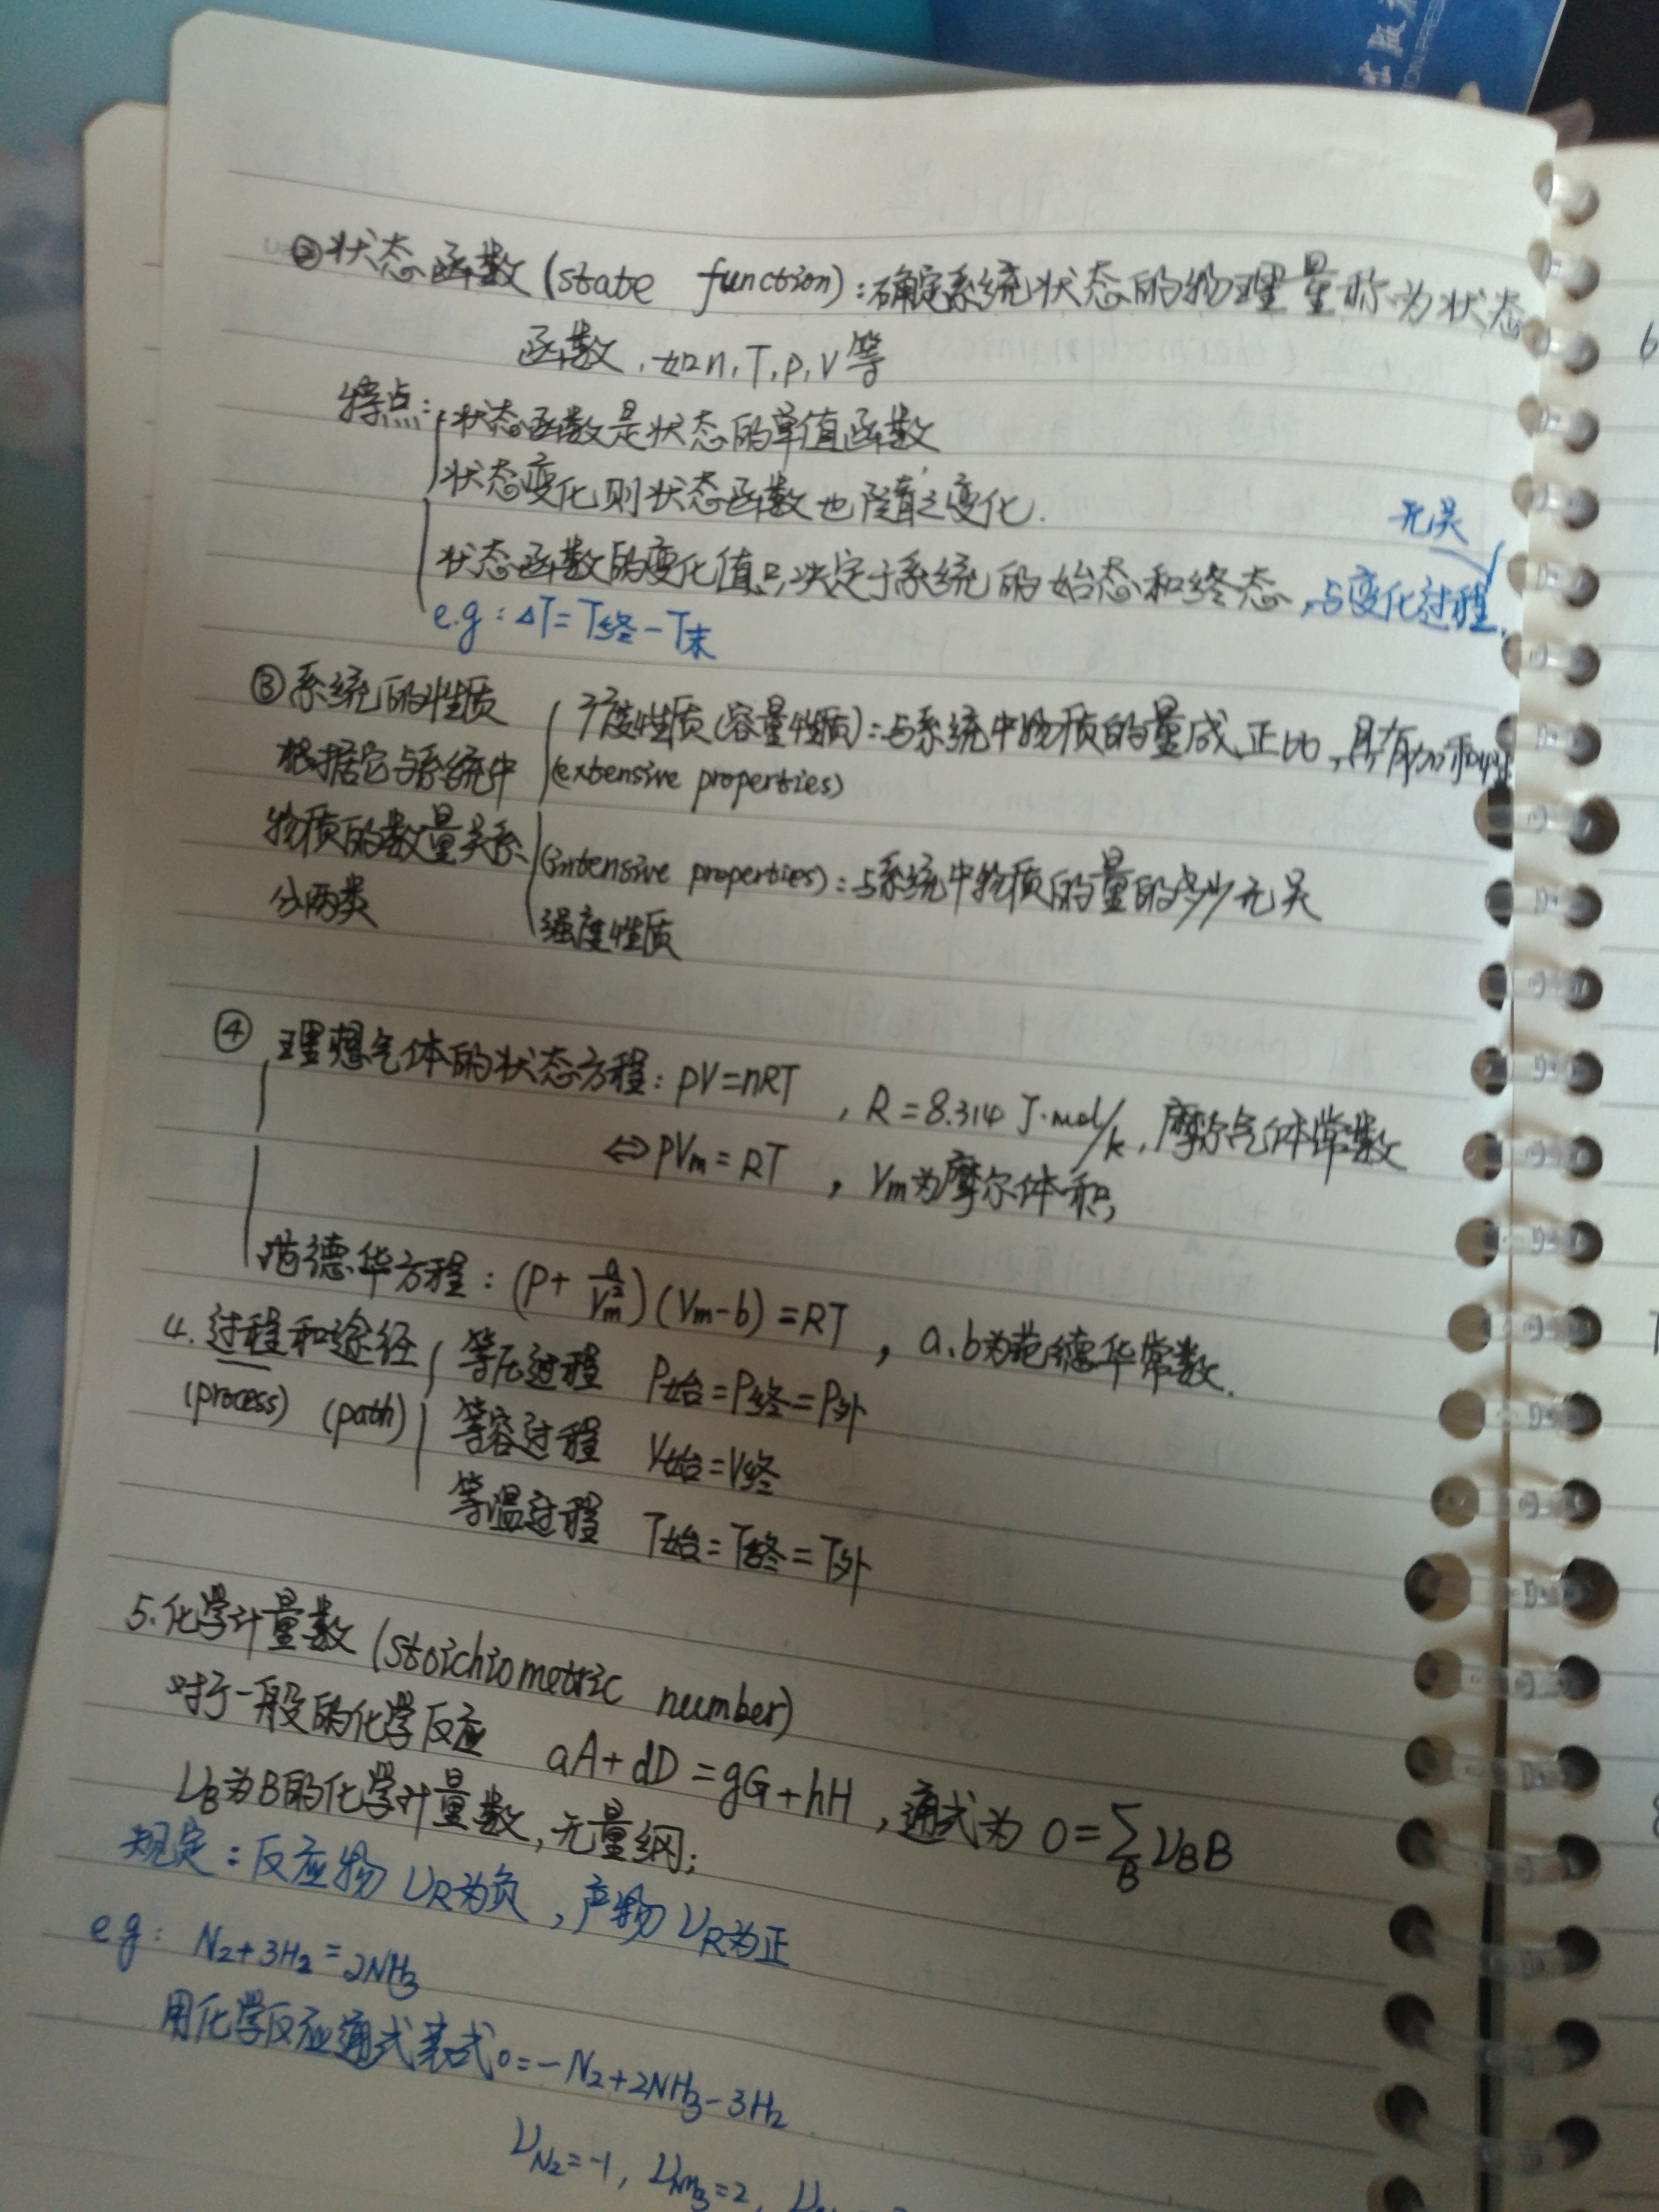 ②状态函数(state function):确定系统状态的物理量称为状态
函数,如n,T,p,V等
特点:
状态函数是状态的单值函数
状态变化则状态函数也随之变化.
无关
状态函数的变化值只决定于系统的始态和终态,与变化过程.
e.g:ΔT=T终-T末
③系统的性质
根据它与系统中
物质的数量关系
分两类
广度性质(容量性质):与系统中物质的量成正比,具有加和性
(extensive properties)
(intensive properties):与系统中物质的量的多少无关
强度性质
④
理想气体的状态方程:pV=nRT ,R=8.314 J·mol/k,摩尔气体常数
⇔pVm=RT ,Vm为摩尔体积
范德华方程:(P+a/Vm²)(Vm-b)=RT ,a.b为范德华常数.
4.过程和途径
(process) (path)
等压过程 P始=P终=P外
等容过程 V始=V终
等温过程 T始=T终=T外
5.化学计量数(stoichiometric number)
对于一般的化学反应 aA+dD=gG+hH,通式为 0=∑νBB
B
νB为B的化学计量数,无量纲;
规定:反应物νR为负,产物νR为正
eg: N₂+3H₂=2NH₃
用化学反应通式表式0=-N₂+2NH₃-3H₂
νN₂=-1, νNH₃=2,
版
ION PRESS